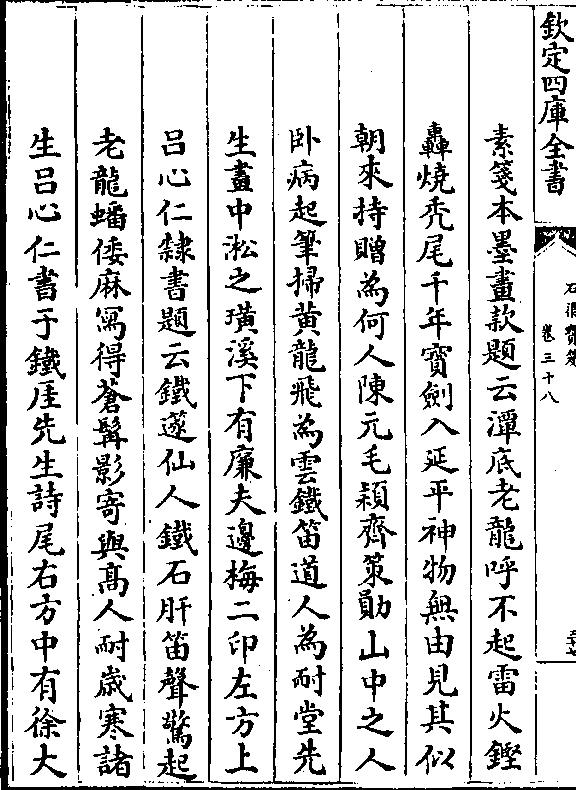 欽定四庫全書
石渠寳笈
卷三十八
素箋本墨畫款題云潭底老龍呼不起雷火鏗
轟燒禿尾千年寳劍入延平神物無由見其似
朝來持贈為何人陳元毛穎齊策勛山中之人
卧病起筆掃黄龍飛為雲鐵笛道人為耐堂先
生畫中淞之璜溪下有廉夫邊梅二印左方上
吕心仁隸書題云鐵篴仙人鐵石肝笛聲驚起
老龍蟠倭麻寫得蒼髯影寄與髙人耐歲寒諸
生吕心仁書于鐵厓先生詩尾右方中有徐大